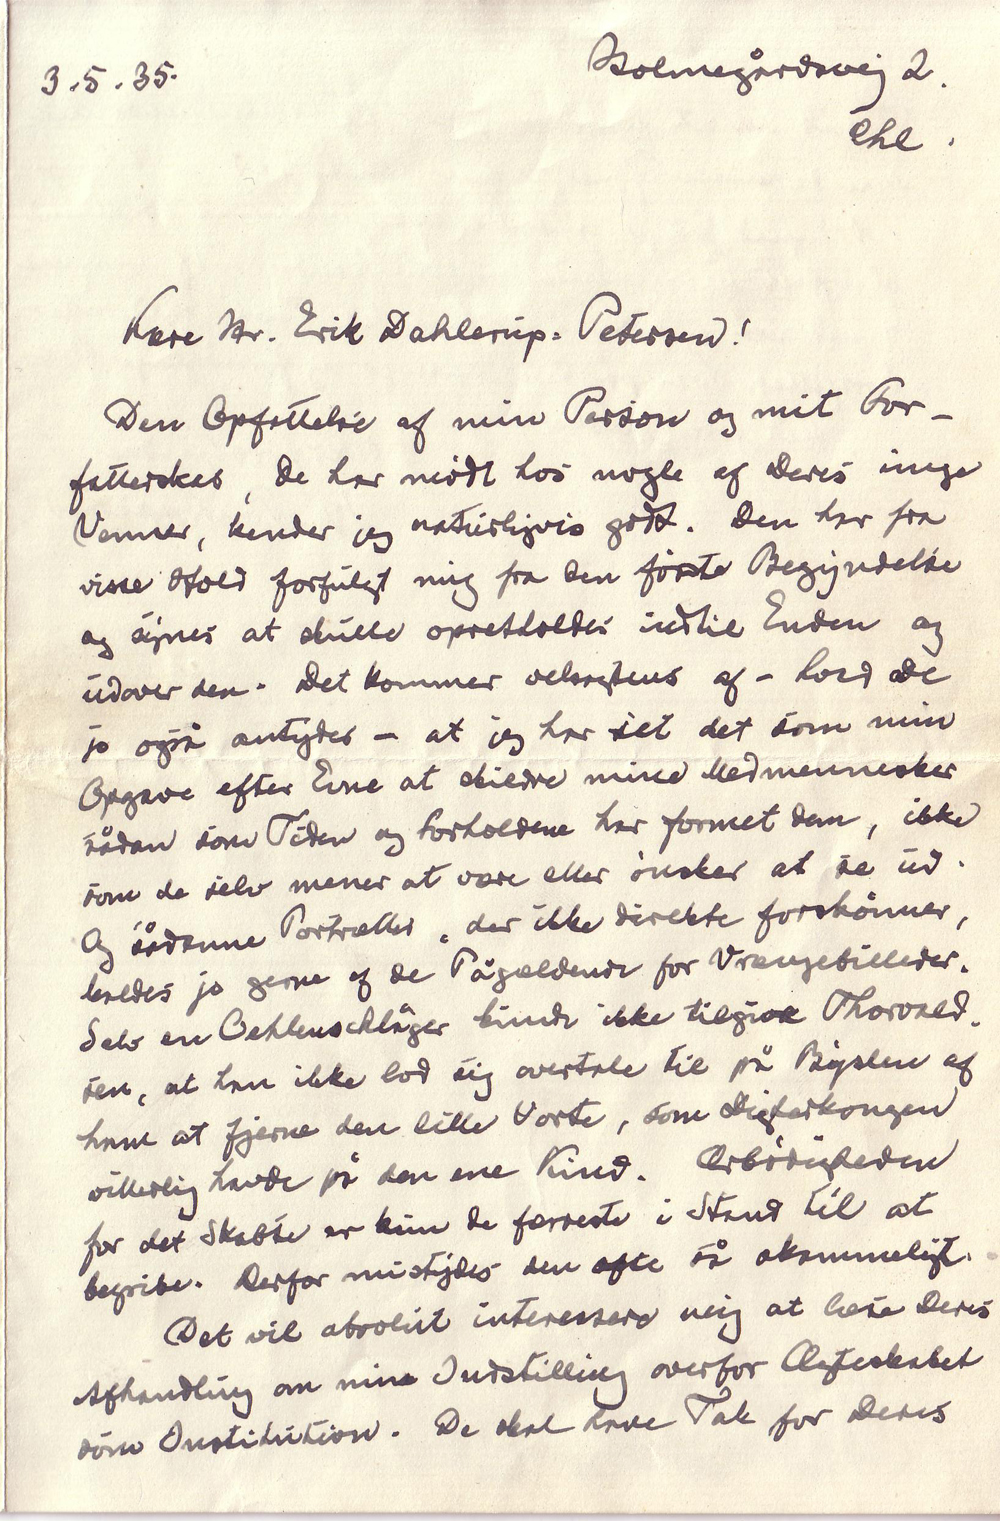 3.5.35.
Holmegårdsvej 2.
Chl.
Kære Hr. Erik Dahlerup-Petersen!
Den Opfattelse af min Person og mit For-
fatterskab, De har mødt hos nogle af Deres unge
Venner, kender jeg naturligvis godt. Den har fra
visse Hold forfulgt mig fra den første Begyndelse
og synes at skulle opretholdes indtil Enden og
udover den. Det kommer velsagtens af - hvad De
jo også antyder - at jeg har set det som min
Opgave efter Evne at skildre mine Medmennesker
sådan som Tiden og Forholdene har formet dem, ikke
som de selv mener at være eller ønsker at se ud.
Og sådanne Portrætter, der ikke direkte forskønner,
kaldes jo gerne af de Pågældende for Vrængebilleder.
Selv en Oehlenschläger kunde ikke tilgive Thorvald-
sen, at han ikke lod sig overtale til på Bysten af
ham at fjerne den lille Vorte, som Digterkongen
vitterlig havde på den ene Kind. Ærbødigheden
for det Skabte er kun de færreste i Stand til at
begribe. Derfor mistydes den ofte så skammeligt.
Det vil absolut interessere mig at læse Deres
Afhandling om min Indstilling overfor Ægteskabet
som Institution. De skal have Tak for Deres